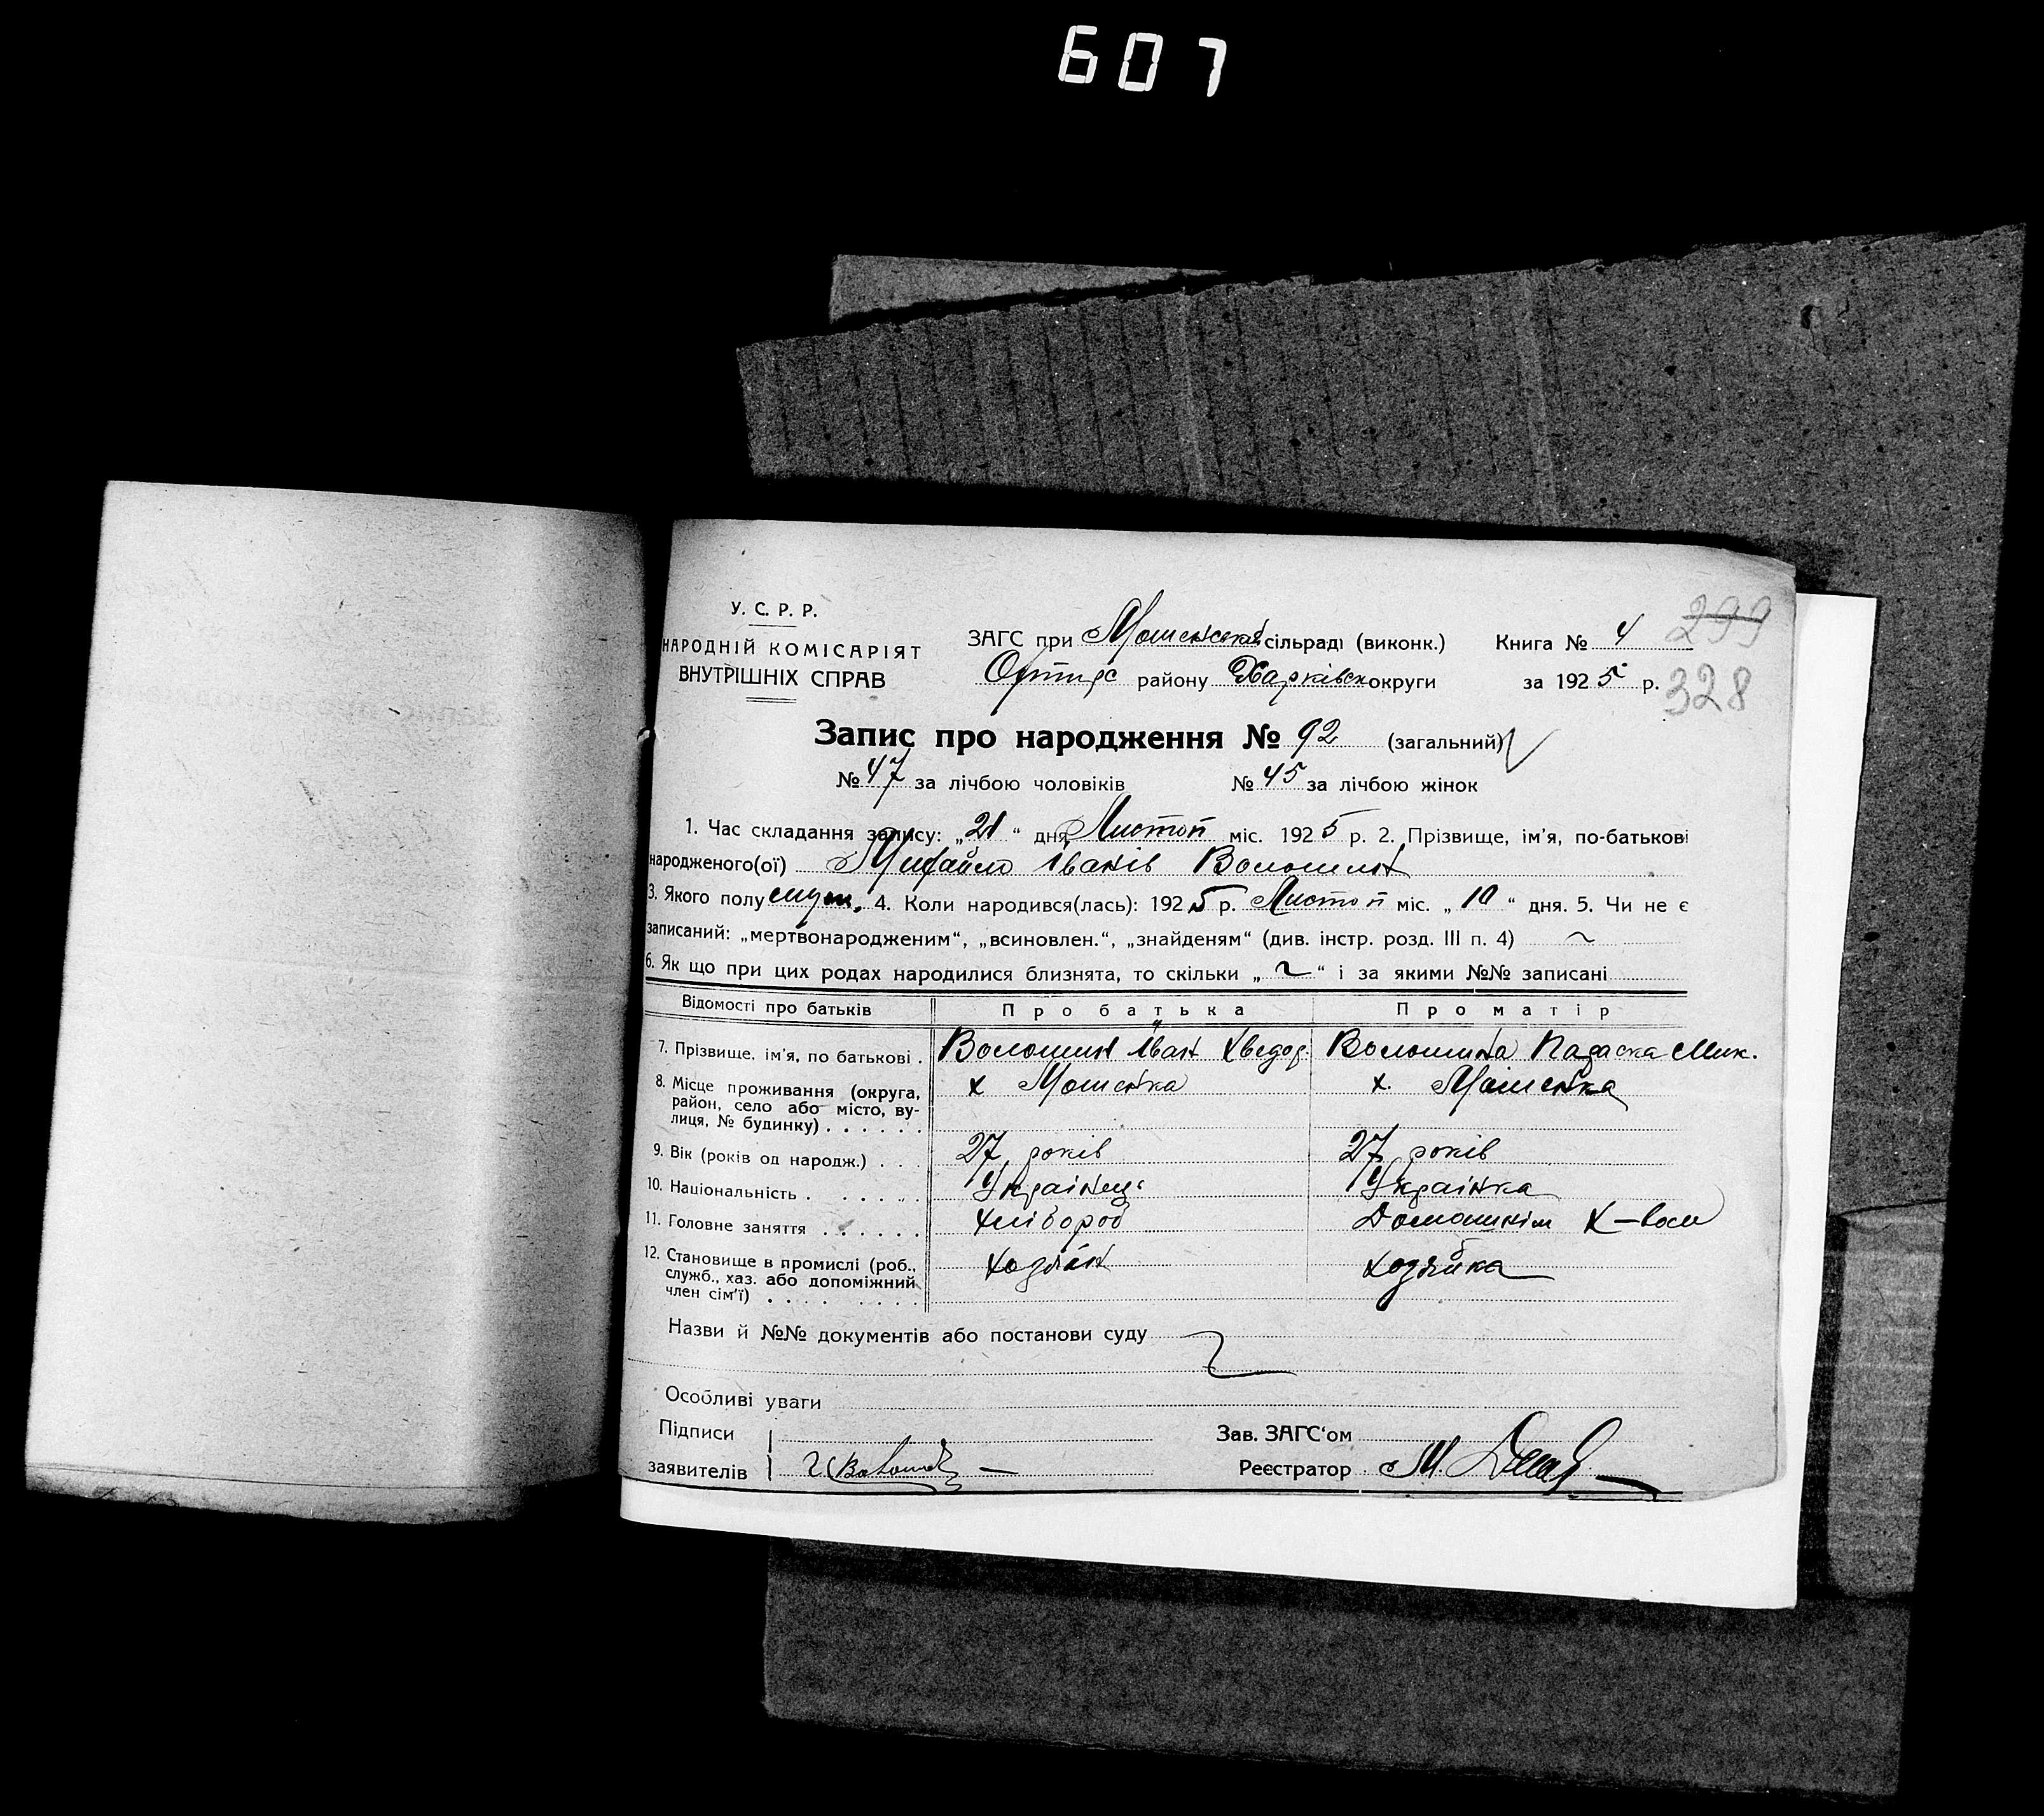 607
У. С. Р. Р.
НАРОДНІЙ КОМІСАРІЯТ
ВНУТРІШНІХ СПРАВ
ЗАГС при Мошенській сільраді (виконк.) Книга № 4 299
району Харківськ округи за 1925 р. 328
Запис про народження № 92 (загальний)
№ 47 за лічбою чоловіків № 45 за лічбою жінок
1. Час складання запису: „21“ дня Листоп міс. 1925 р. 2. Прізвище, ім'я, по-батькові
народженого(ої) Михайло Іванів Волошин
3. Якого полу муж. 4. Коли народився(лась): 1925 р. Листоп міс. „10“ дня. 5. Чи не є
записаний: „мертвонародженим“, „всиновлен.“, „знайденям“ (див. інстр. розд. III п. 4) ~
6. Як що при цих родах народилися близнята, то скільки „~“ і за якими №№ записані
Відомості про батьків Про батька Про матір
7. Прізвище, ім'я, по батькові . Волошин Іван Хведор. Волошина Параска Мик.
8. Місце проживання (округа, х Мошенка х. Мошенка
район, село або місто, ву-
лиця, № будинку) . . . . . .
9. Вік (років од народж.) . . . 27 років 27 років
10. Національність . . . . . . Українець Українка
11. Головне заняття . . . . . . Хлібороб Домашнім х–вом
12. Становище в промислі (роб., Хозяін Хозяйка
служб., хаз. або допоміжний
член сім'ї) . . . . . . . .
Назви й №№ документів або постанови суду
Особливі уваги
Підписи Зав. ЗАГС'ом
заявителів Реєстратор